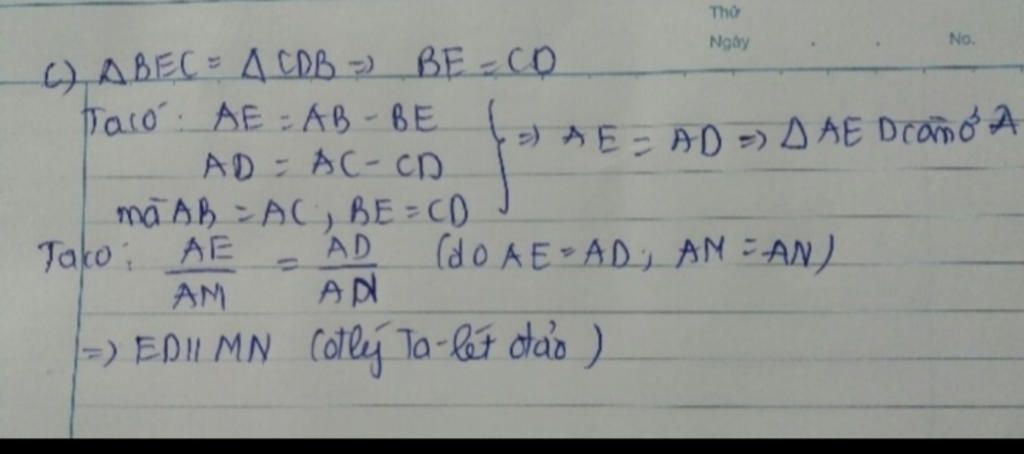 Thứ
Ngày . . No.
c) ΔBEC = ΔCDB => BE = CD
Ta có: AE = AB - BE
AD = AC - CD
mà AB = AC, BE = CD } => AE = AD => ΔAED cân ở A
Ta có: AE/AM = AD/AN (do AE = AD; AM = AN)
=> ED // MN (đlý Ta-lét đảo)